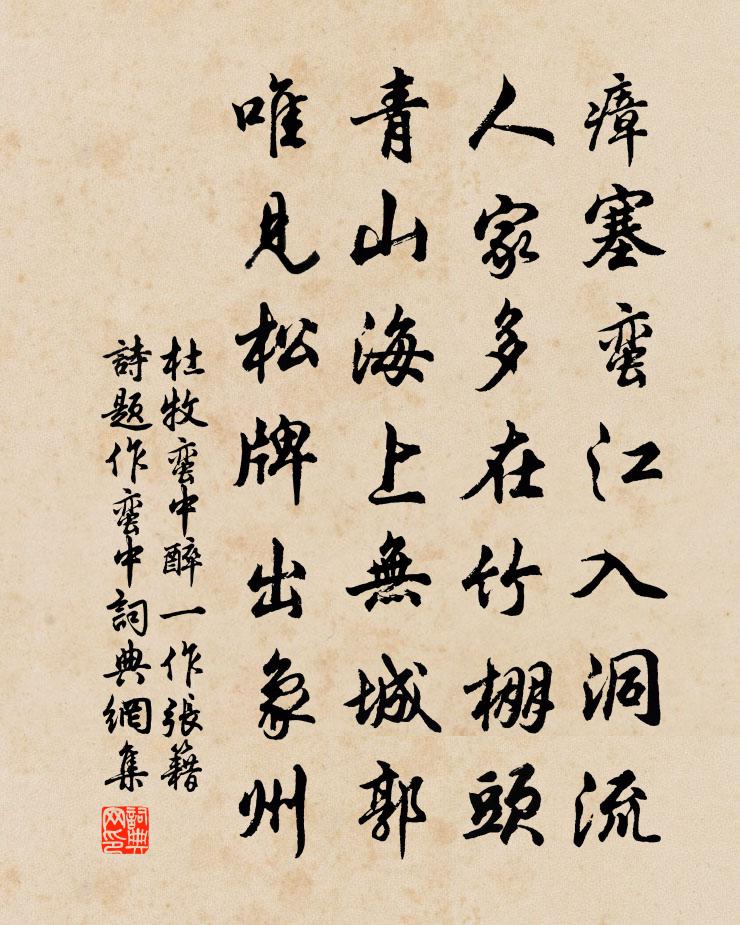 瘴塞蛮江入洞流
人家多在竹棚頭
青山海上無城郭
唯見松牌出象州
杜牧蛮中醉一作張籍
詩題作蛮中詞典網集
詞典
网印